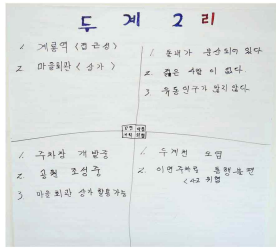 두계2리
1. 계룡역 (접근성)
2. 마을회관 (상가)
1. 동네가 분산되어 있다
2. 젊은 사람이 없다
3. 유동인구가 많지 않다
강점 약점
기회 위협
1. 주차장 개발중
2. 공원 조성중
3 마을회관 상가 활용가능
1. 두계천 오염
2. 이면주차로 통행불편